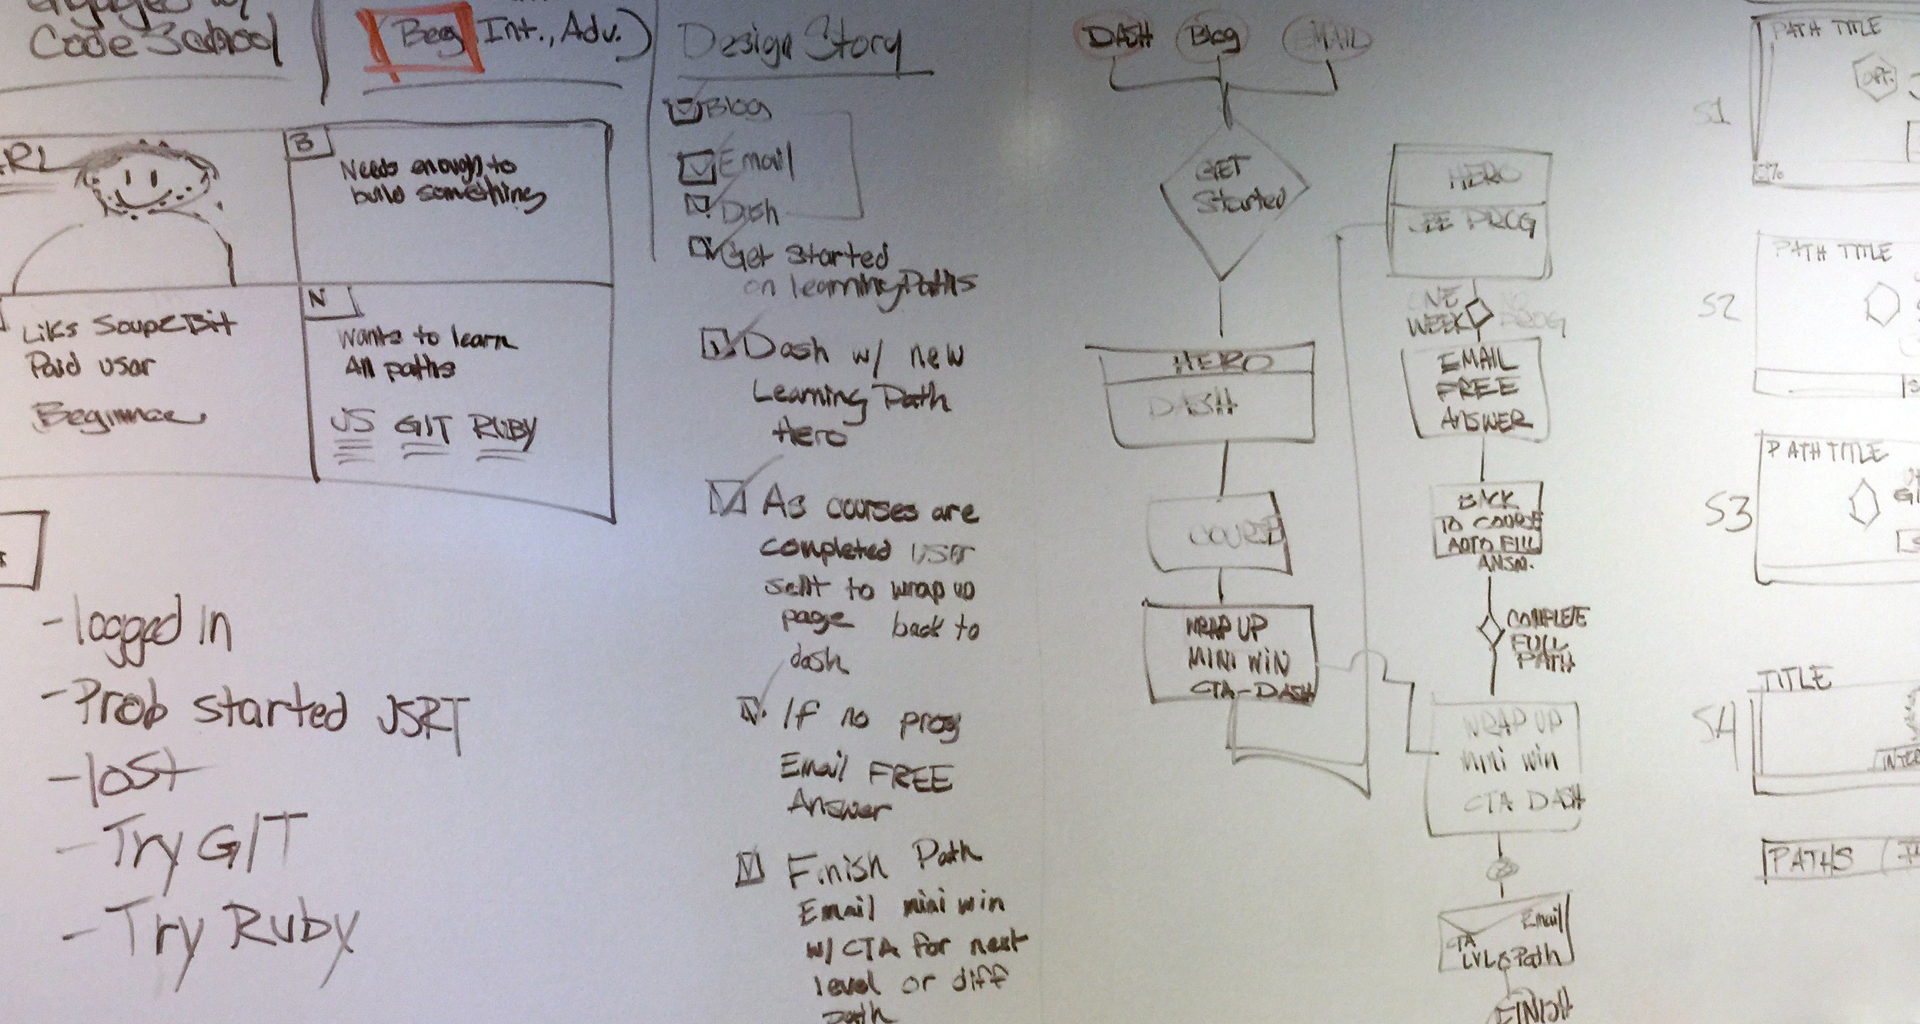 Code School
Beg Int., Adv.)
B
Needs enough to
build something
Paid user
Beginner
N
Wants to learn
All paths
JS GIT RUBY
- logged in
- Prob started JSRT
- lost
- Try GIT
- Try Ruby
Design Story
Blog
Email
Dash
Get Started
on learning Paths
Dash w/ new
Learning Path
Hero
As courses are
completed user
sent to wrap up
page back to
dash
If no prog
Email FREE
Answer
Finish Path
Email mini win
w/ CTA for next
level or diff
path
DASH Blog EMAIL
GET
Started
HERO
DASH
COURSE
WRAP UP
MINI WIN
CTA-DASH
HERO
SEE PROG
ONE
WEEK
NO
PROG
EMAIL
FREE
ANSWER
BACK
TO COURSE
AUTO FILL
ANSW.
COMPLETE
FULL
PATH
WRAP UP
mini win
CTA DASH
Email
CTA
Path
FINISH
S1
PATH TITLE
S2
PATH TITLE
S3
PATH TITLE
S4
TITLE
PATHS